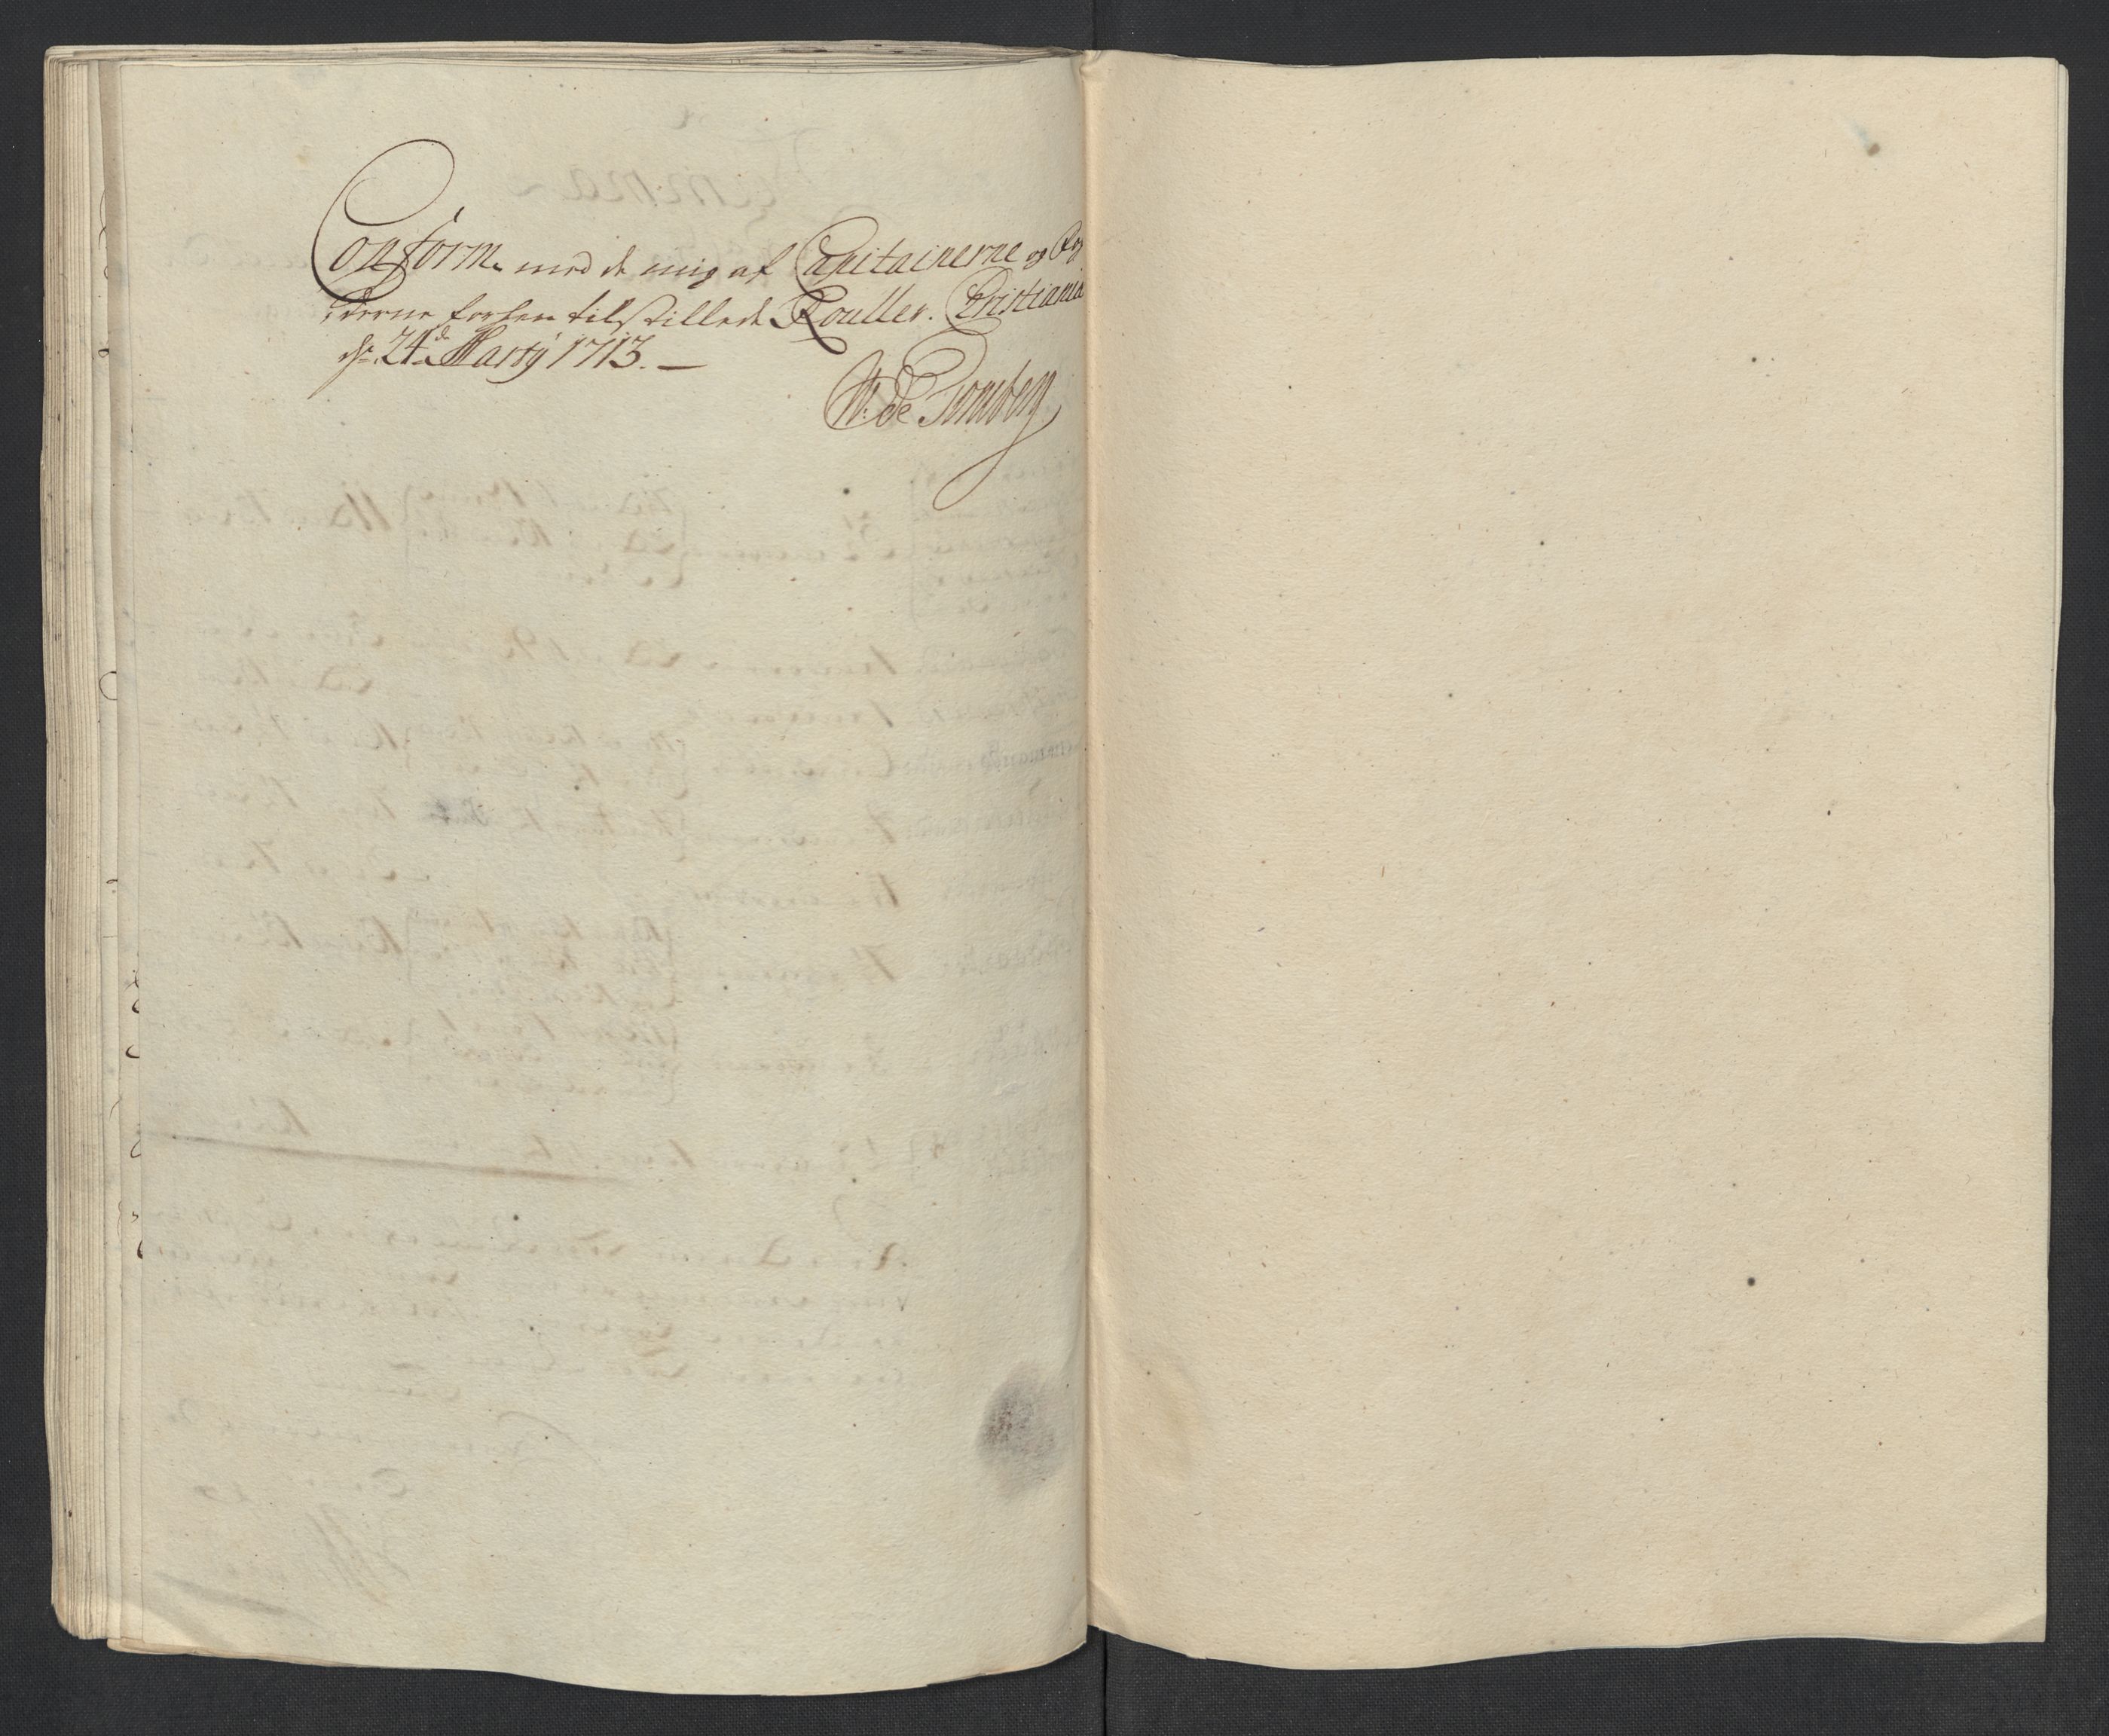 Conform med de mig af Capitainerne og Fog
derne forhen tilstillede Rouller. Christiania
d. 24de Martÿ 1713. —
de Tonsberg